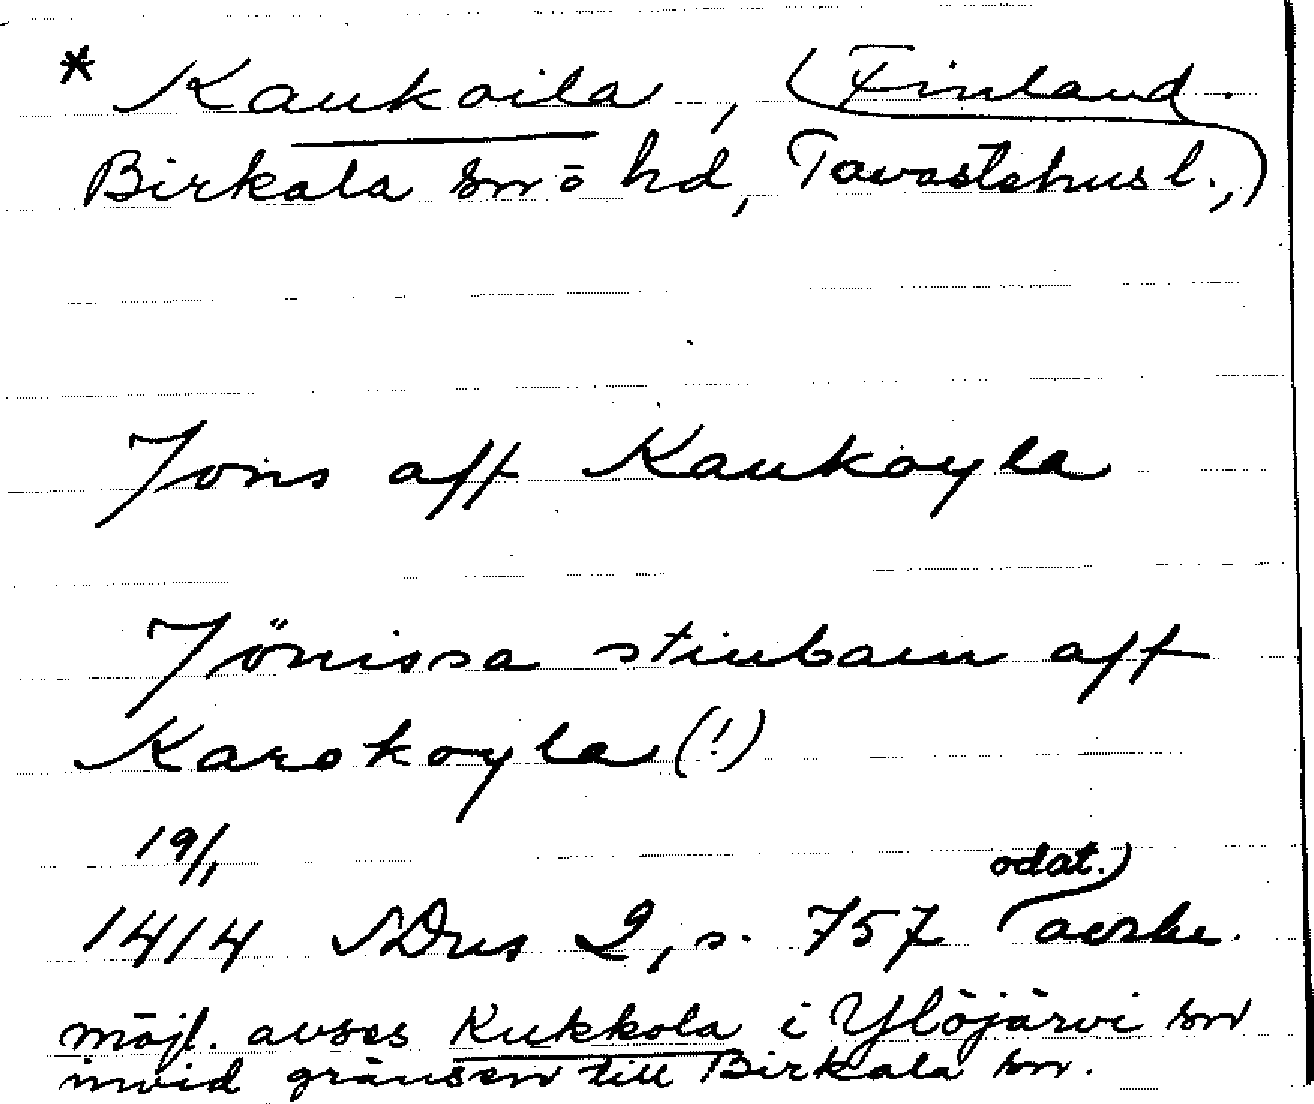 * Kaukoila, (Finland.
Birkala sn o hd, Tavastehus l.,)
Jons aff Kaukoyla
Jönissa stiubam aff
Karokoyla (!)
19/1
1414 SDns 2, s. 757 odat.)
(avskr.
möjl. avses Kukkola i Ylöjärvi sn
invid gränsen till Birkala sn.